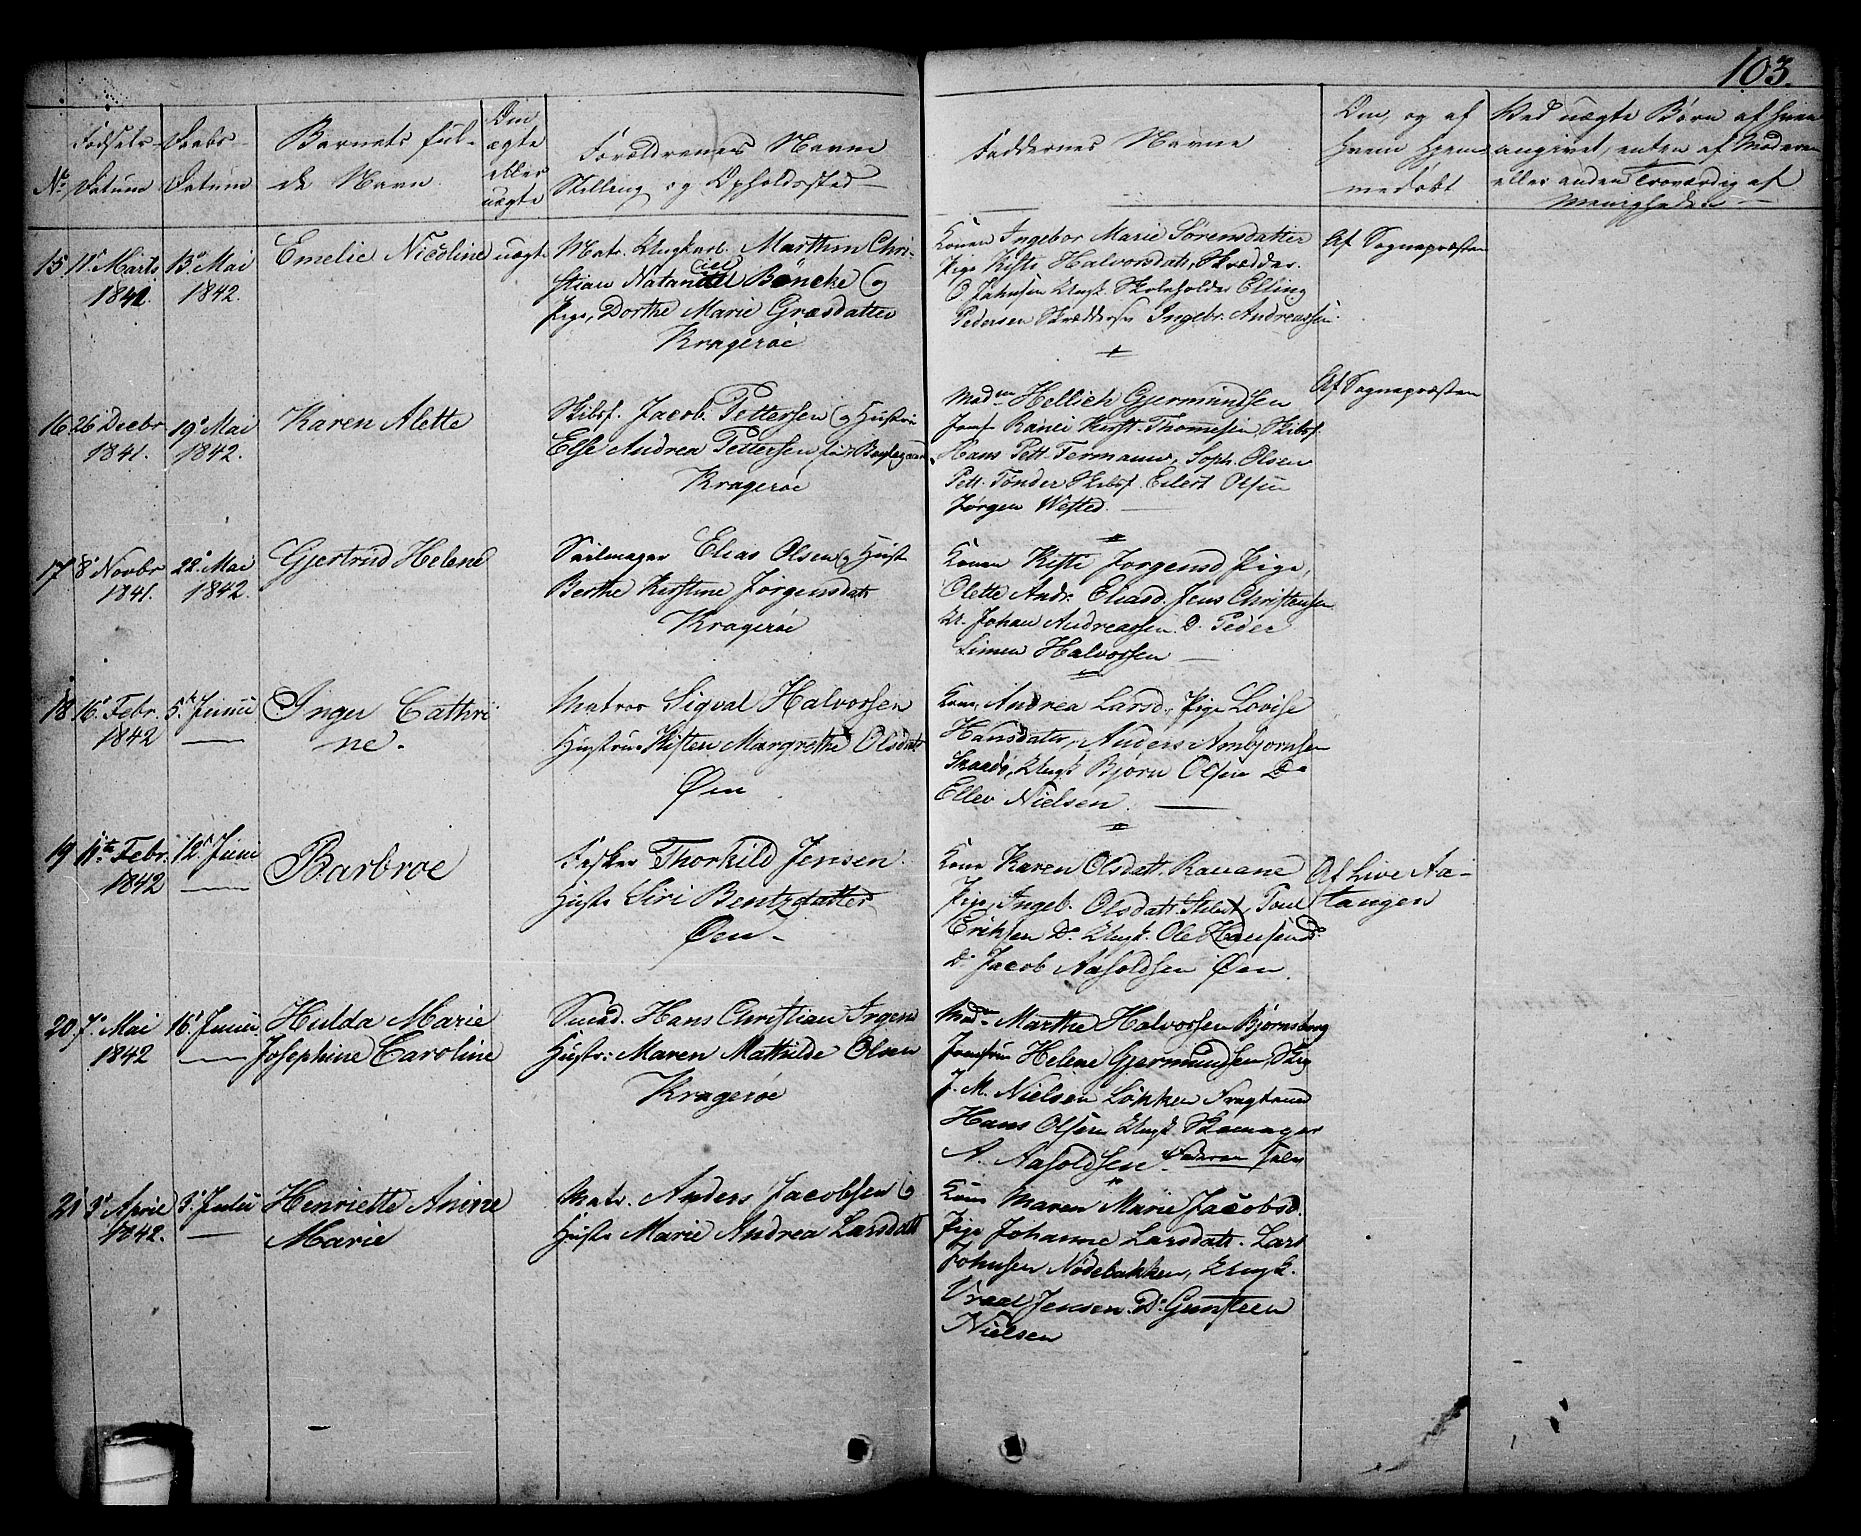 103.
No
Fødsels-
Datum
Daabs-
Datum
Barnets ful-
de Navn.
Om
ægte
eller
uægte
Forældrenes Navne
Stilling og Opholdssted
Faddernes Navne
Om, og af
hvem hjem-
medøbt
Ved uægte Børn af hvem
angivet, enten af Moderen
eller anden Troværdig af
Menigheden
15 11te Marts 13de Mai Emelie Nicoline uægte
1842 1842.
Matr. Ungkarl. Marthin Chri-
stian Nataniel Böncke og
Pige, Dorthe Marie Græsdatter
Kragerøe
Konen Ingebor Marie Sørensdatter
Pige Kisti Halvorsdatr, Skrædder
O. Johnsen Ungk. Skoleholder Elling
Pedersen Skrædders Ingebr. Andreassen
Af Sognepræsten
16 26 Decbr 19de Mai Karen Alette
1841. 1842.
Skibsf. Jacob Pettersen og Hustru
Else Andrea Pettersen
Kragerøe
Mad. Hellich Gjermundsen
Jomf. Kirst. Thomesen, Skibsf.
Hans Pett. Termann, Soph. Olsen
Pett. Tønder Skibsf. Eilert Olsen
Jørgen Wefted.
Af Sognepræsten
17 8de Novbr 22de Mai Gjertrud Helene
1841. 1842.
Seilmager Elias Olsen og Hustr
Berthe Kirstine Jørgensdatr
Kragerøe
Konen Kisti Jørgensd Pige,
Olette Andr. Eliasd. Jens Christensen
Johan Andreassen. D. Peder
Simen Halvorsen
18 16de Febr. 5te Junii Inger Cathri
1842 ne.
Matros Sigval Halvorsen
Hustrue Kisten Margrethe Olsdatr
Øen
Kone, Andrea Larsd., Pige Lovise
Hansdatter, Anders Ambjørnsen
Skaadø, Ungk. Bjørn Olsen Do
Ellev Nielsen.
19 11te Febr. 12te Junii Barbroe
1842
Fisker Thorkild Jensen.
Hustr Siri Bentzdatter
Øen
Kone Karen Olsdatt. Ravane
Pige, Ingeb. Olsdatr. Poul
Eriksen Do Ungk. Ole Hansen
Do Jacob Aasoldsen Øen.
Af Live Aa-
tangen
20 7de Mai 16de Junii Hulda Marie
1842 Josephine Caroline
Smed. Hans Christian Irgens
Hustr: Maren Mathilde Olsen
Kragerøe
Mad. Marthe Halvorsen Bjørnsborg
Jomfru Helene Gjermundsen,
J. M. Nielsen Løkken
Hans Olsen Ungk. Skomager
A. Aasoldsen. Faderen selv
21 3de April 3de Julii Henriette Anine
1842. Marie
Matr. Anders Jacobsen og
Hustr Marie Andrea Larsdatt
Kone Maren Marie Jacobsd.
Pige Johanne Larsdatr. Lars
Johnsen Nødebakken, Ungk.
Vraal Jensen. Do Gunsteen
Nielsen